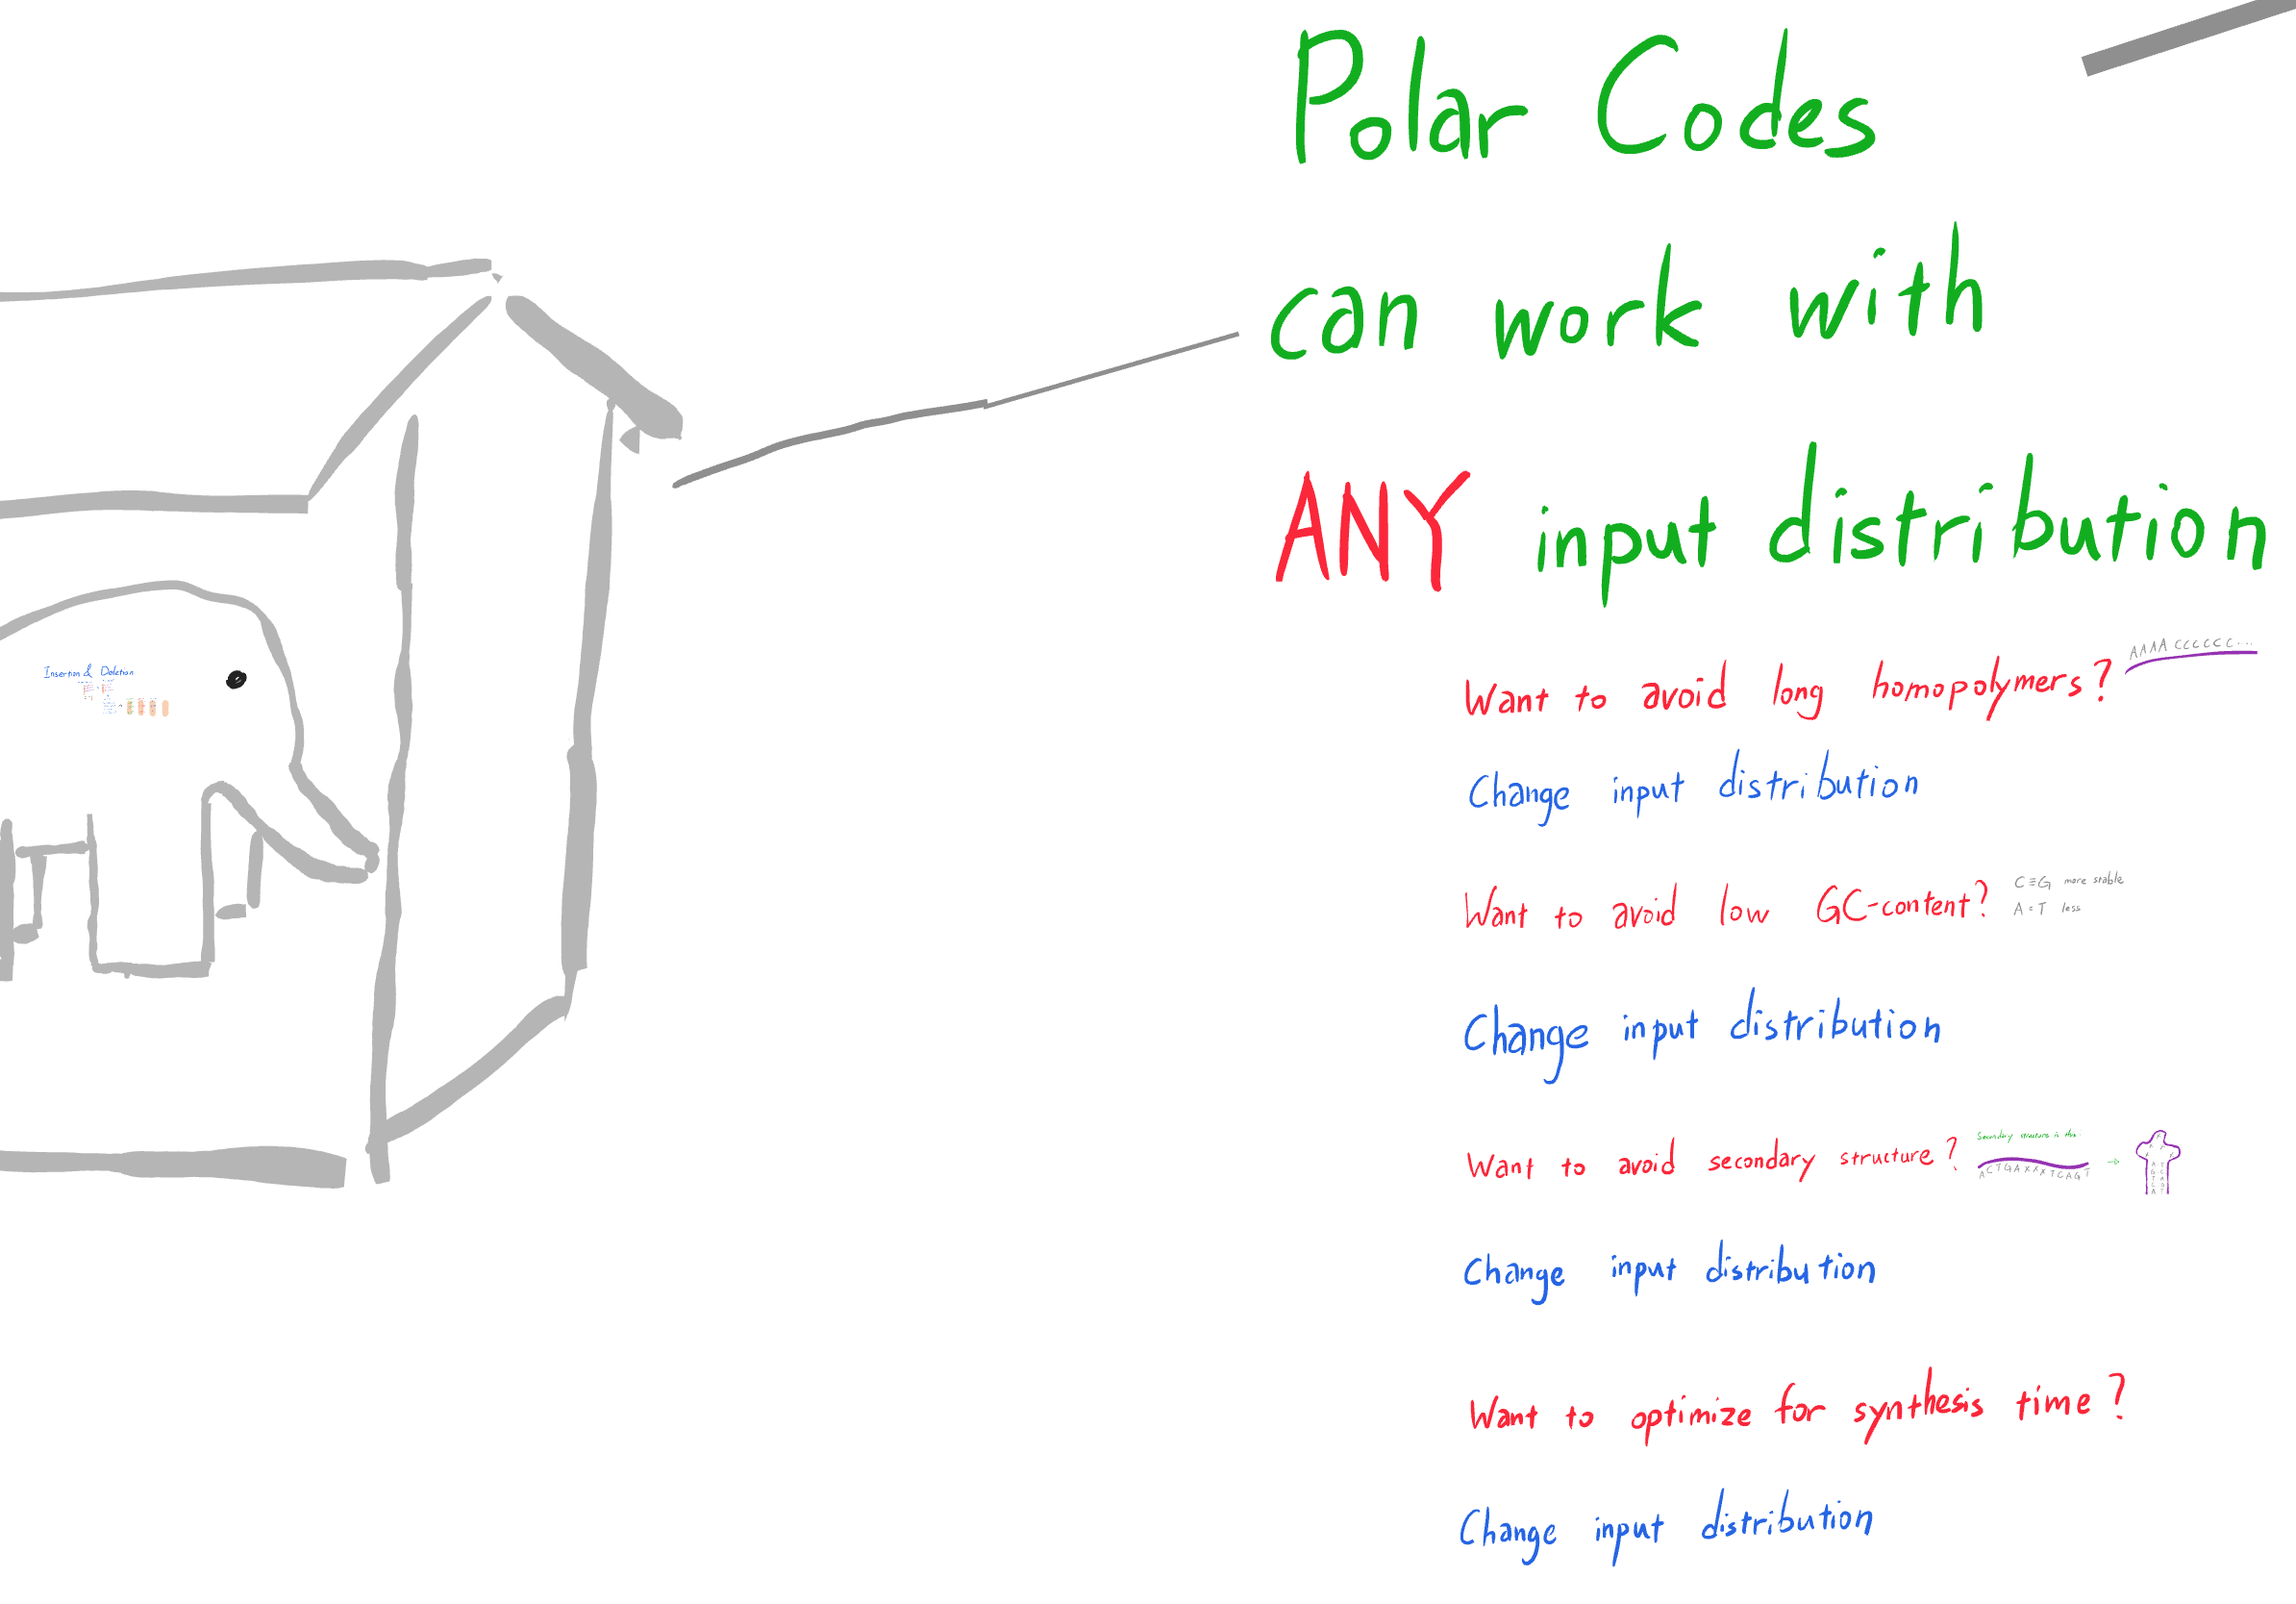 Polar Codes
can work with
ANY input distribution
Want to avoid long homopolymers? AAAA CCCCCC...
Change input distribution
Want to avoid low GC-content? C≡G more stable
A=T less
Change input distribution
Want to avoid secondary structure? Secondary structure is this
ACTGAXXXTCAGT →
Change input distribution
Want to optimize for synthesis time?
Change input distribution
Insertion & Deletion